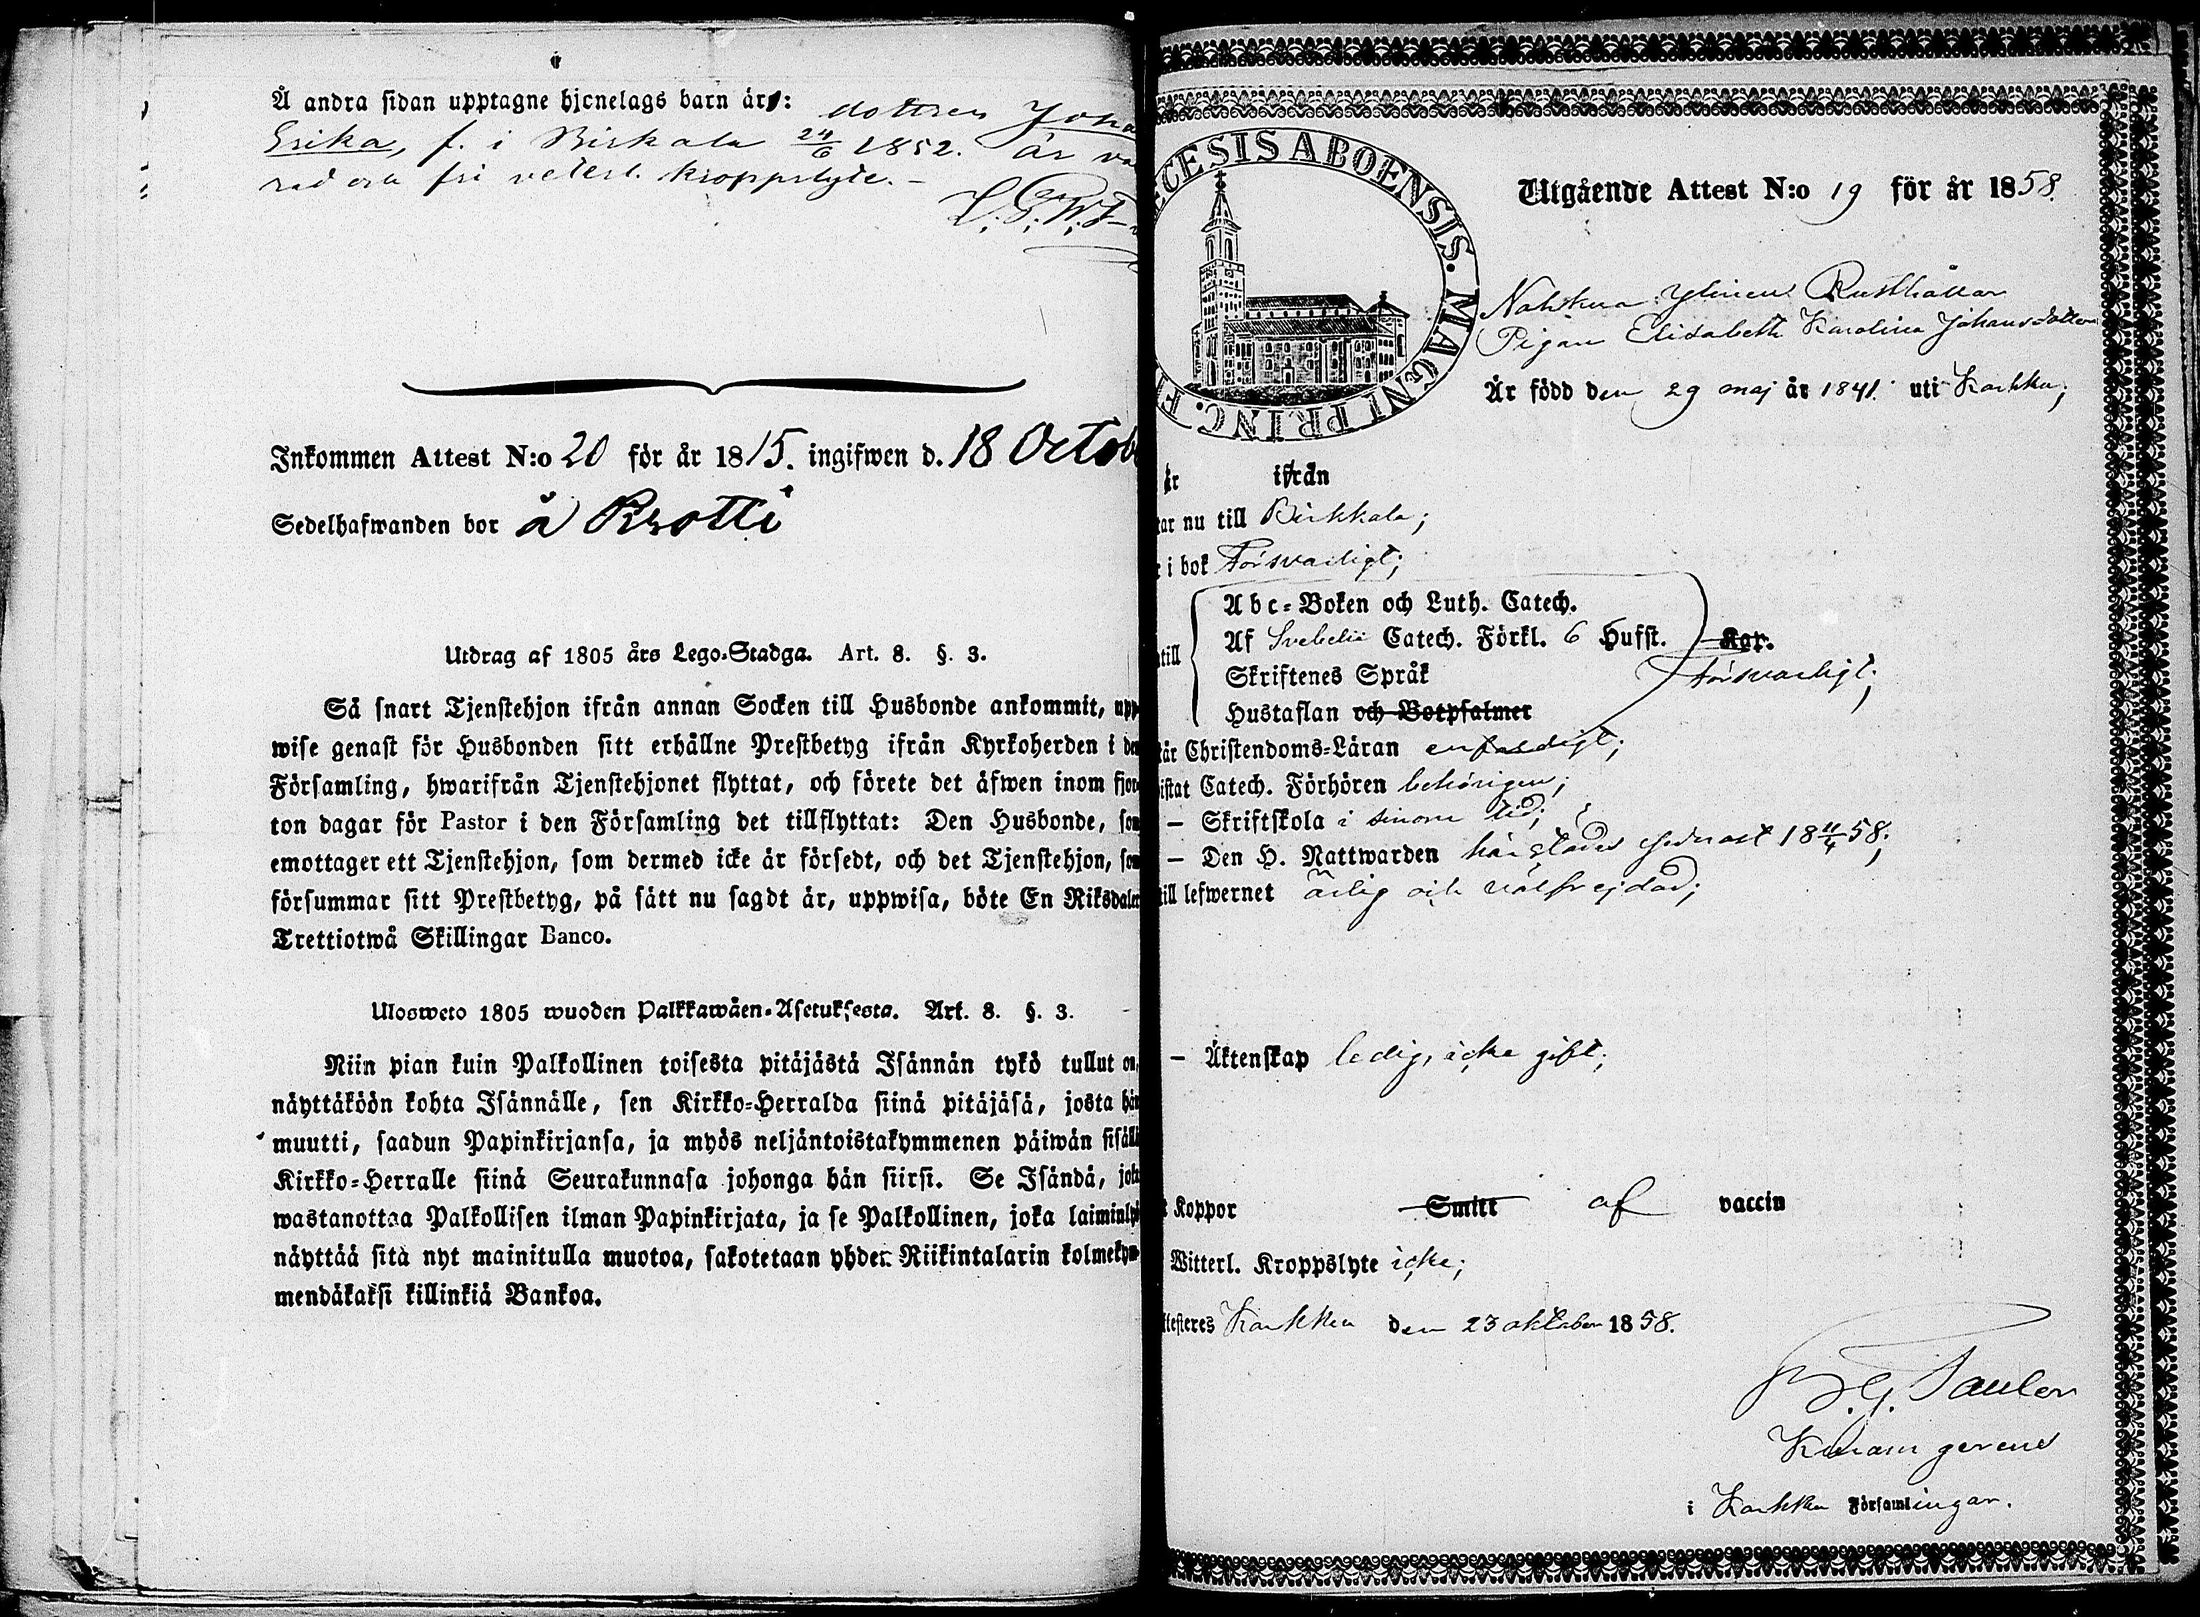 Å andra sidan upptagne hjonelags barn är: dottren Joha
Erika, f. i Birkala 24/6 1852. är va
rad och fri veterl. kroppslyte. –
Inkommen Attest N:o 20 för år 1815. ingifwen d. 18 Octob
Sedelhafwanden bor å Knotti
Utdrag af 1805 års Lego-Stadga. Art. 8. §. 3.
Så snart Tjenstehjon ifrån annan Socken till Husbonde ankommit, upp
wise genast för Husbonden sitt erhållne Prestbetyg ifrån Kyrkoherden i den
Församling, hwarifrån Tjenstehjonet flyttat, och förete det äfwen inom fjor
ton dagar för Pastor i den Församling det tillflyttat: Den Husbonde, som
emottager ett Tjenstehjon, som dermed icke är försedt, och det Tjenstehjon, som
försummar sitt Prestbetyg, på sätt nu sagdt är, uppwisa, böte En Riksdaler
Trettiotwå Skillingar Banco.
Ulosweto 1805 wuoden Palkkawäen-Asetuksesta. Art. 8. §. 3.
Niin pian kuin Palkollinen toisesta pitäjästä Isännän tykö tullut on,
näyttäköön kohta Isännälle, sen Kirkko-Herralda siinä pitäjäsä, josta hän
muutti, saadun Papinkirjansa, ja myös neljäntoistakymmenen päiwän sisällä
Kirkko-Herralle siinä Seurakunnasa johonga hän siirsi. Se Isändä, joka
wastanottaa Palkollisen ilman Papinkirjata, ja se Palkollinen, joka laiminly
näyttää sitä nyt mainitulla muotoa, sakotetaan yhden Riikintalarin kolmekym-
mendäkaksi killinkiä Bankoa.
ECESIS ABOENSIS. MAGNI PRINC. F
Utgående Attest N:o 19 för år 1858.
Nohkua Ylinen Rusthållar
Pigan Elisabeth Karolina Johansdotter
Är född den 29 maj år 1841. uti Karkku;
är ifrån
tar nu till Birkkala;
i bok Försvarligt;
Abc-Boken och Luth. Catech.
till Af Svebelii Catech. Förkl. 6 Hufst. Kap.
Skriftenes Språk Försvarligt;
Hustaflan och Botpsalmer
tår Christendoms-Läran enfaldigt;
istat Catech. Förhören behörigen;
– Skriftskola i sinom tid;
– Den H. Nattwarden härstädes sednast 18 11/4 58;
till lefwernet ärlig och välfrejdad;
– Äktenskap ledig, icke gift;
t Koppor Smitt af vaccin
Witterl. Kroppslyte icke;
ttesteres Karkku den 23 oktober 1858.
B. G. Paulen
Kuram gerens
i Karkku Församlingar.